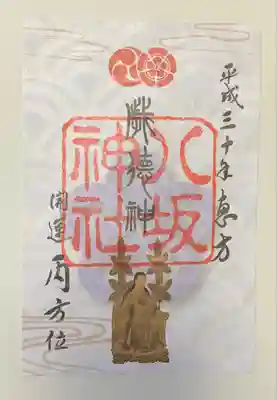 平成三十年 惠方
歳德神
八坂
神社
開運 丙方位